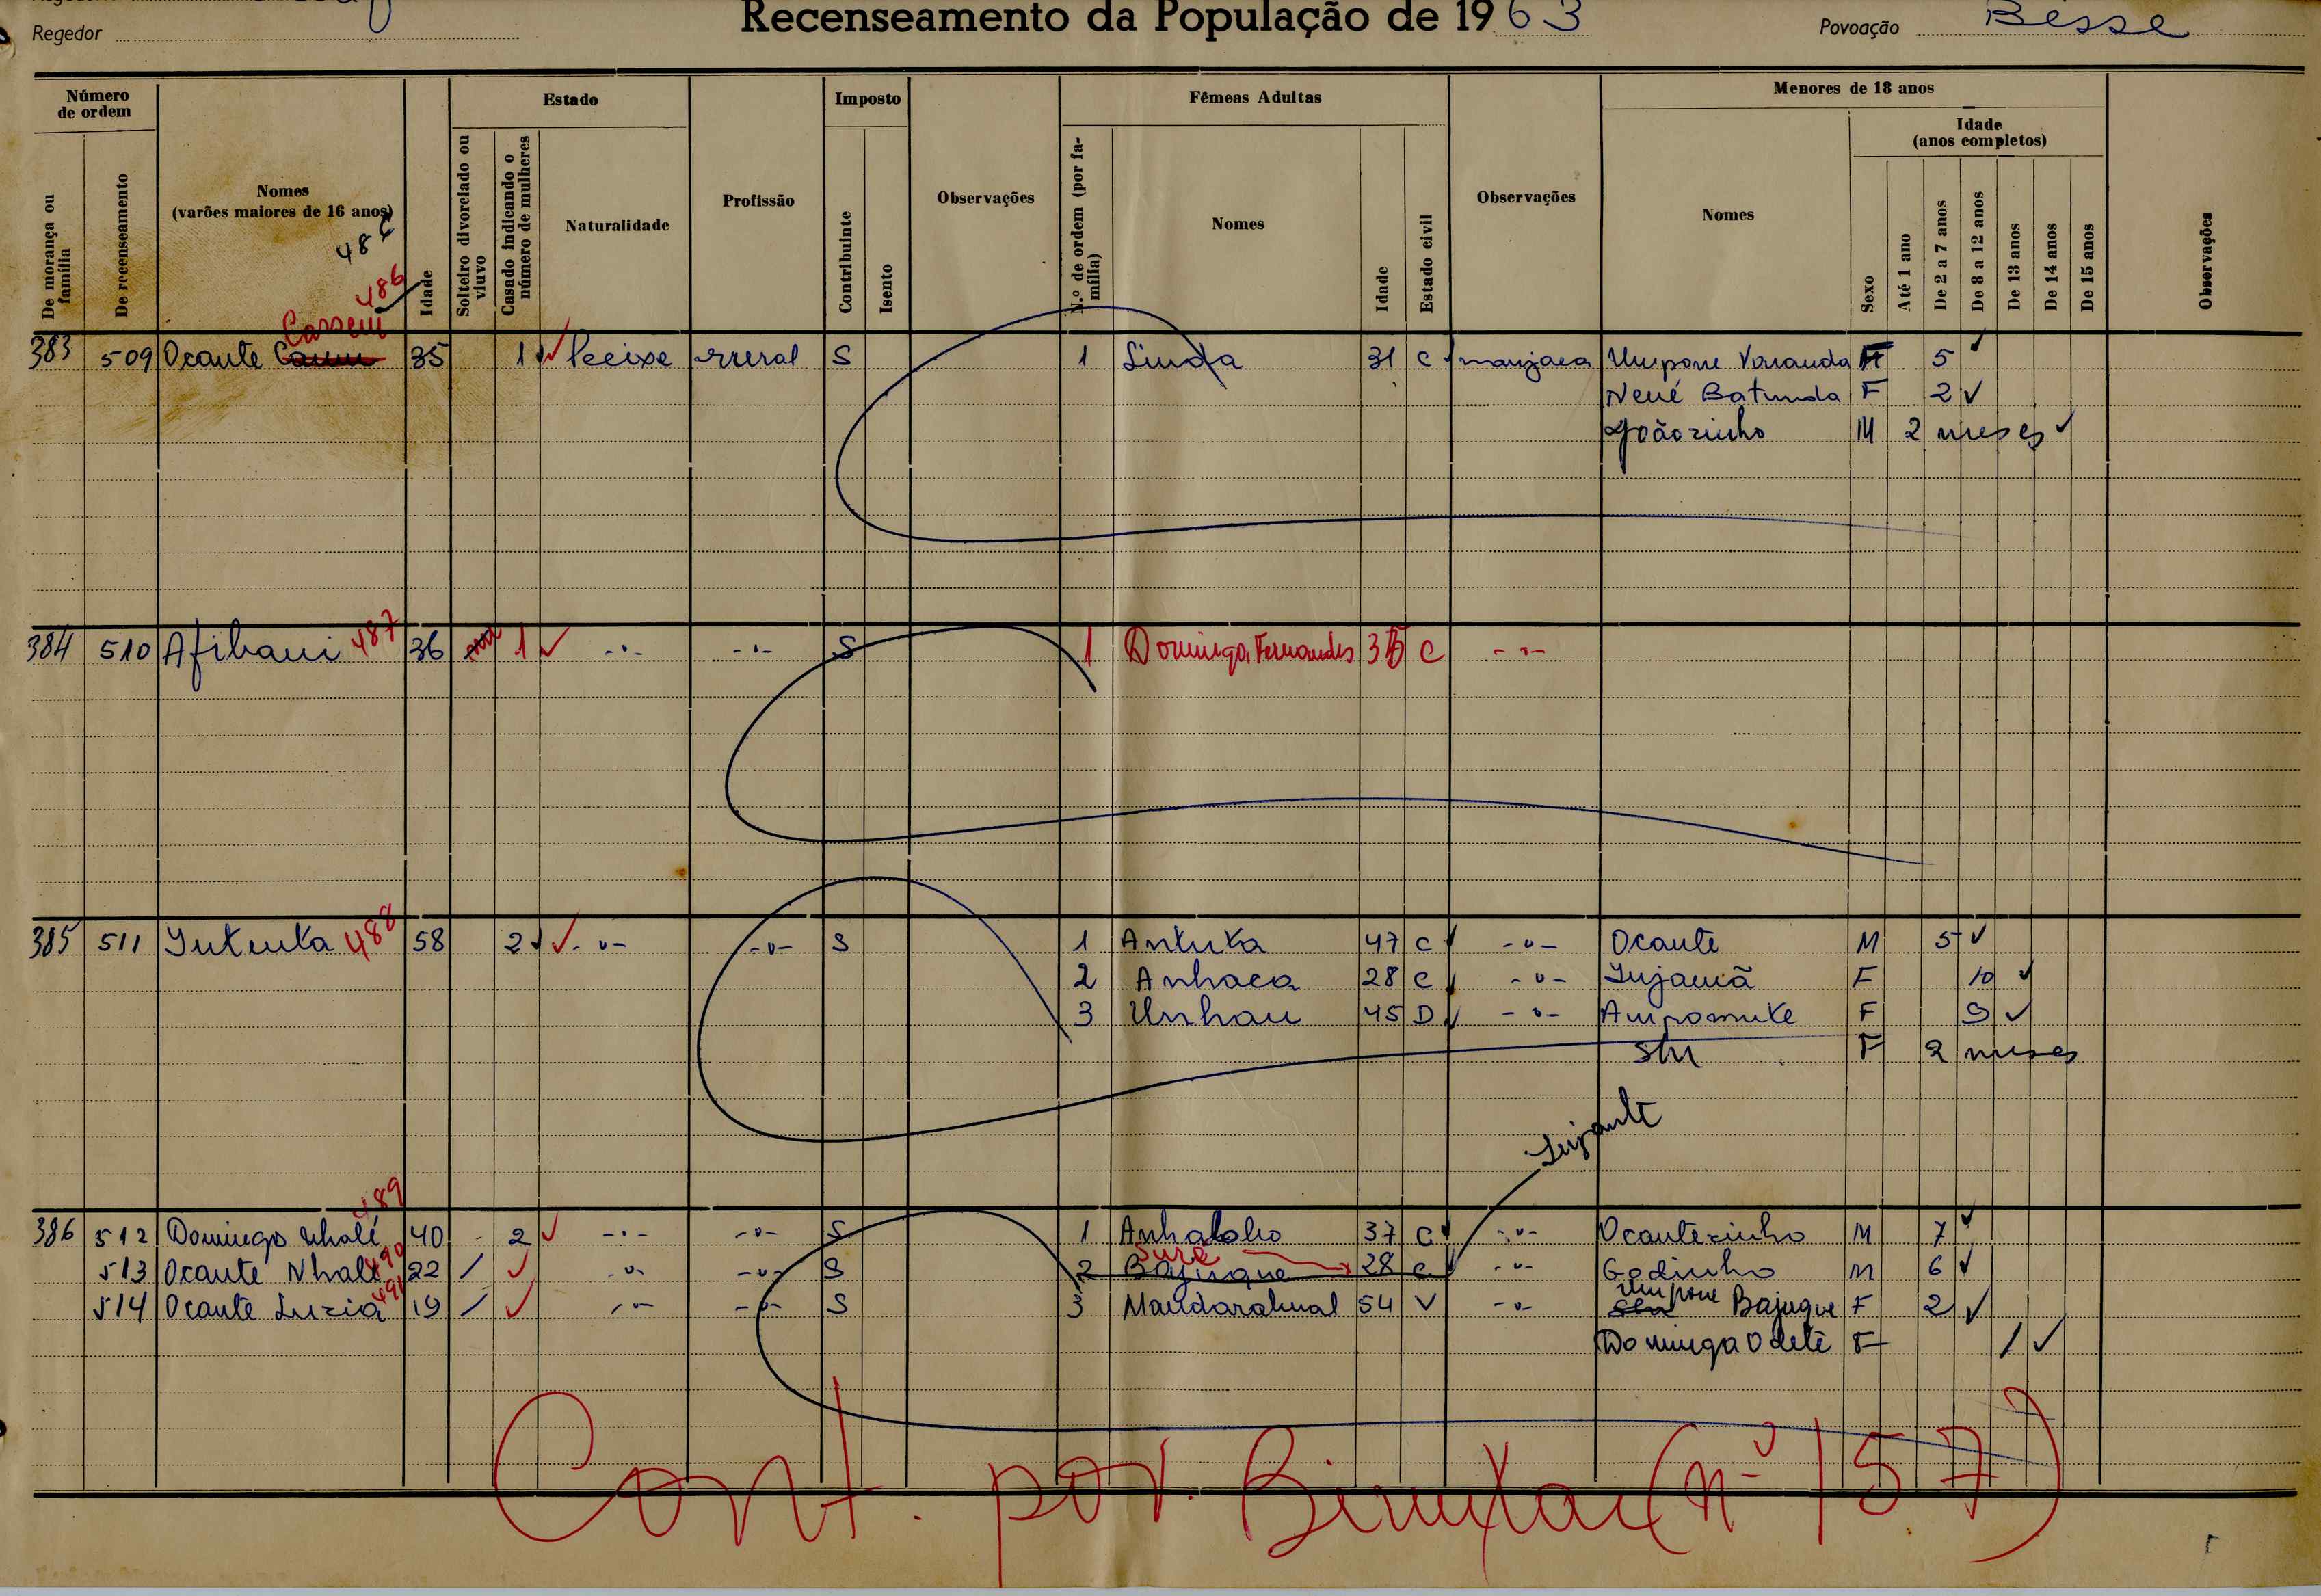 Regedor
Recenseamento da População de 1963
Povoação Besse
Número de ordem
De morança ou família
De recenseamento
Nomes (varões maiores de 16 anos)
Idade
Estado
Solteiro divorciado ou viuvo
Casado indicando o número de mulheres
Naturalidade
Profissão
Imposto
Contribuinte
Isento
Observações
Fêmeas Adultas
N.º de ordem (por família)
Nomes
Idade
Estado civil
Observações
Menores de 18 anos
Nomes
Sexo
Idade (anos completos)
Até 1 ano
De 2 a 7 anos
De 8 a 12 anos
De 13 anos
De 14 anos
De 15 anos
Observações
486
486
Cassem
383 509 Ocante 35 1 Peeixe rrural S 1 Linda 31 C manjaca Umpone Varanda F 5
Nené Batunda F 2
Joãozinho M 2 meses
384 510 Afibani 487 36 1 -"- -"- S 1 Dominga Fernandes 35 C -"-
385 511 Intenta 488 58 2 -"- -"- S 1 Antuta 47 C -"- Ocante M 5
2 Anhaca 28 C -"- Injamã F 10
3 Unhau 45 D -"- Ampomike F 9
S/n F 2 meses
489
386 512 Domingo Nhalé 40 2 -"- -"- S 1 Anhaloho 37 C -"- Ocantezinho M 7
Sure
513 Ocante Nhalé 490 22 / -"- -"- S 2 Bajuque 28 C -"- Godinho M 6
514 Ocante Luzia 491 19 / -"- -"- S 3 Mandarahual 54 V -"- Umpone Bajuque F 2
Dominga Odete F /
Cont. por Biruxar (nº 157)